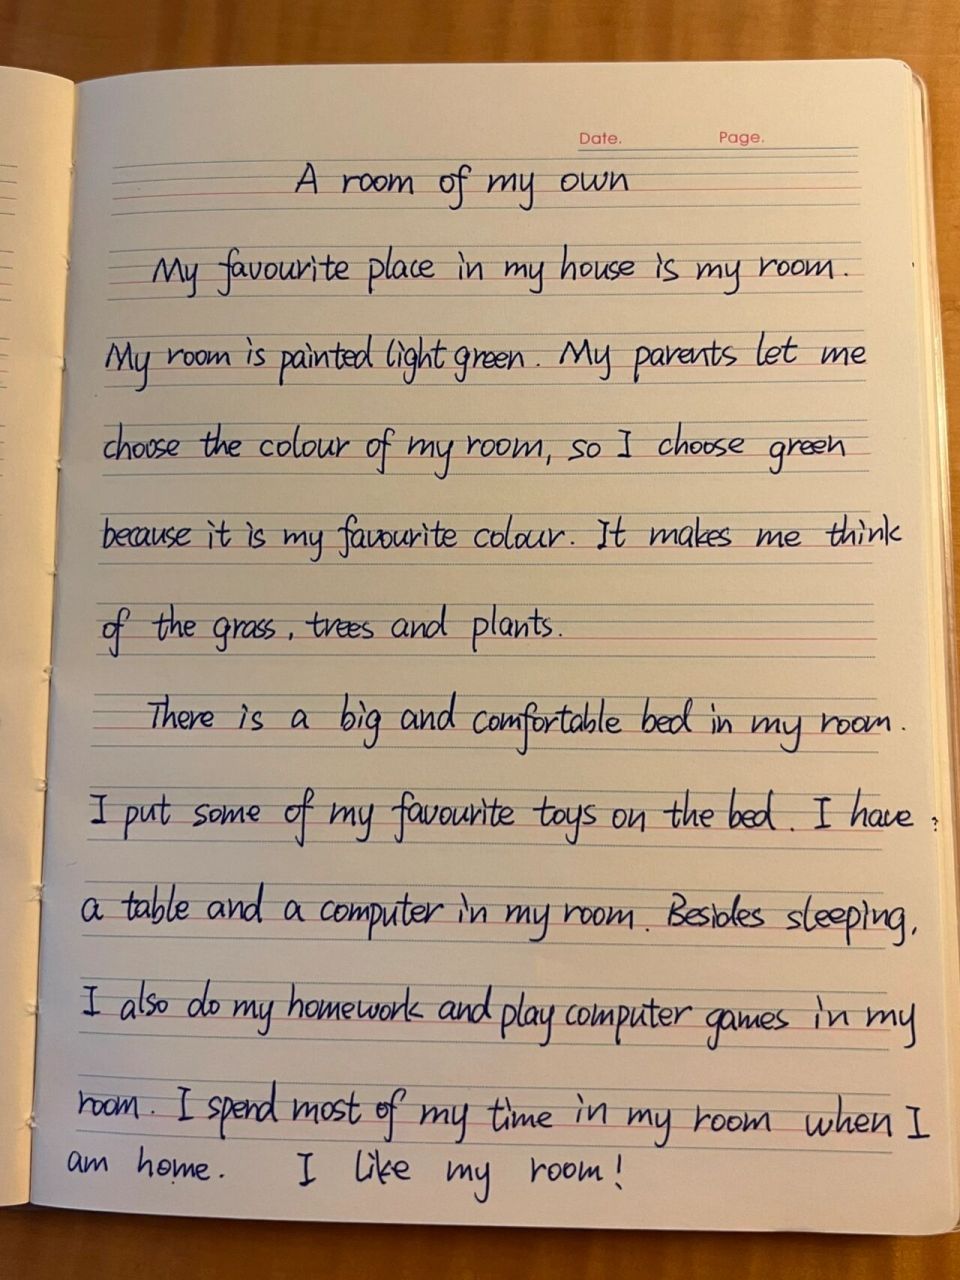 Date. Page.
A room of my own
My favourite place in my house is my room.
My room is painted light green. My parents let me
choose the colour of my room, so I choose green
because it is my favourite colour. It makes me think
of the grass, trees and plants.
There is a big and comfortable bed in my room.
I put some of my favourite toys on the bed. I have
a table and a computer in my room. Besides sleeping,
I also do my homework and play computer games in my
room. I spend most of my time in my room when I
am home. I like my room!